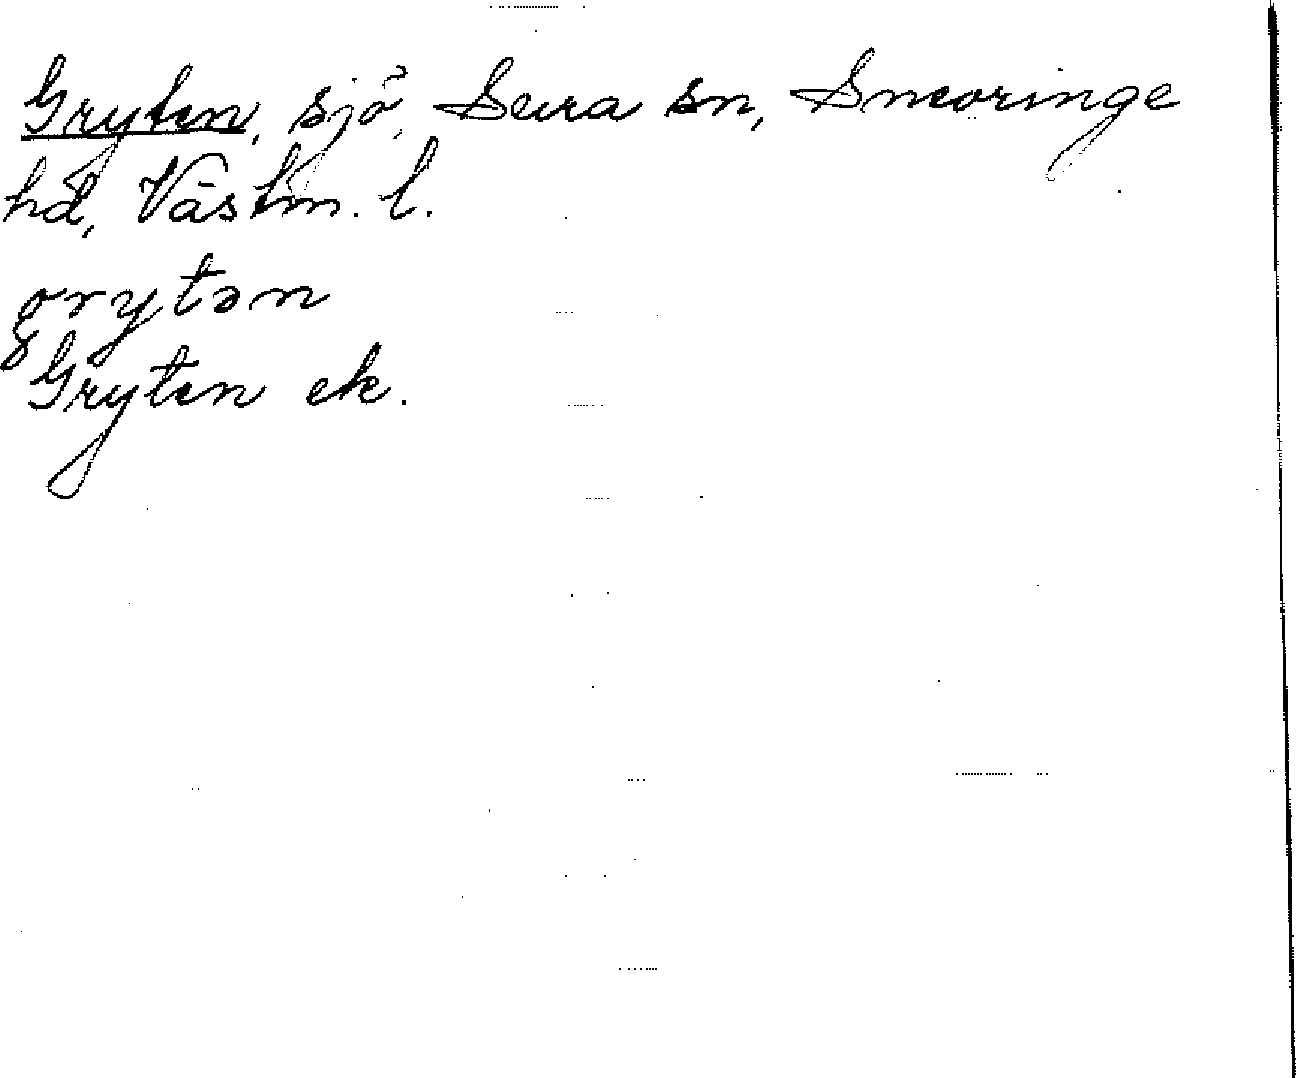 Gryten, sjö, Sura sn, Snevringe
hd, Västm. l.
grytən
Gryten ek.